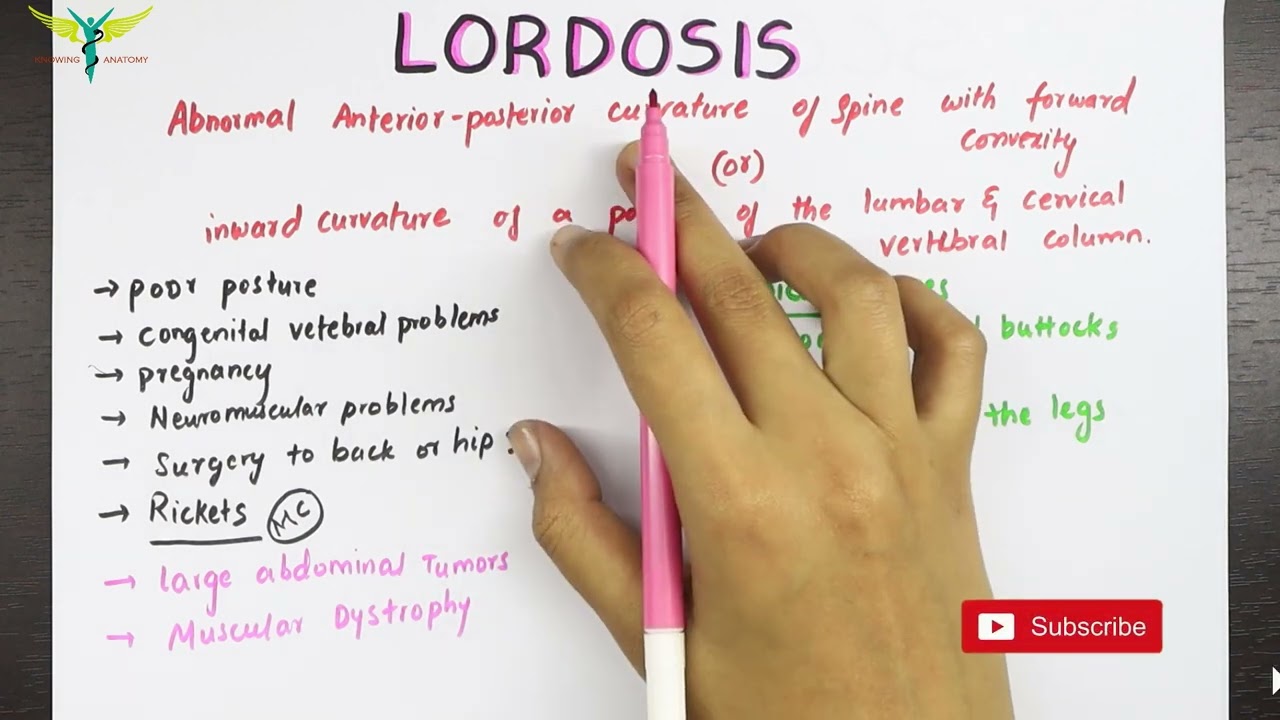 KNOWING ANATOMY
LORDOSIS
Abnormal Anterior-posterior curvature of Spine with forward
convexity
(or)
inward curvature of a of the lumbar & cervical
vertebral column.
→ poor posture
→ congenital vetebral problems
→ pregnancy
→ Neuromuscular problems
→ Surgery to back or hip
→ Rickets MC
→ large abdominal Tumors
→ Muscular Dystrophy
buttocks
the legs
Subscribe